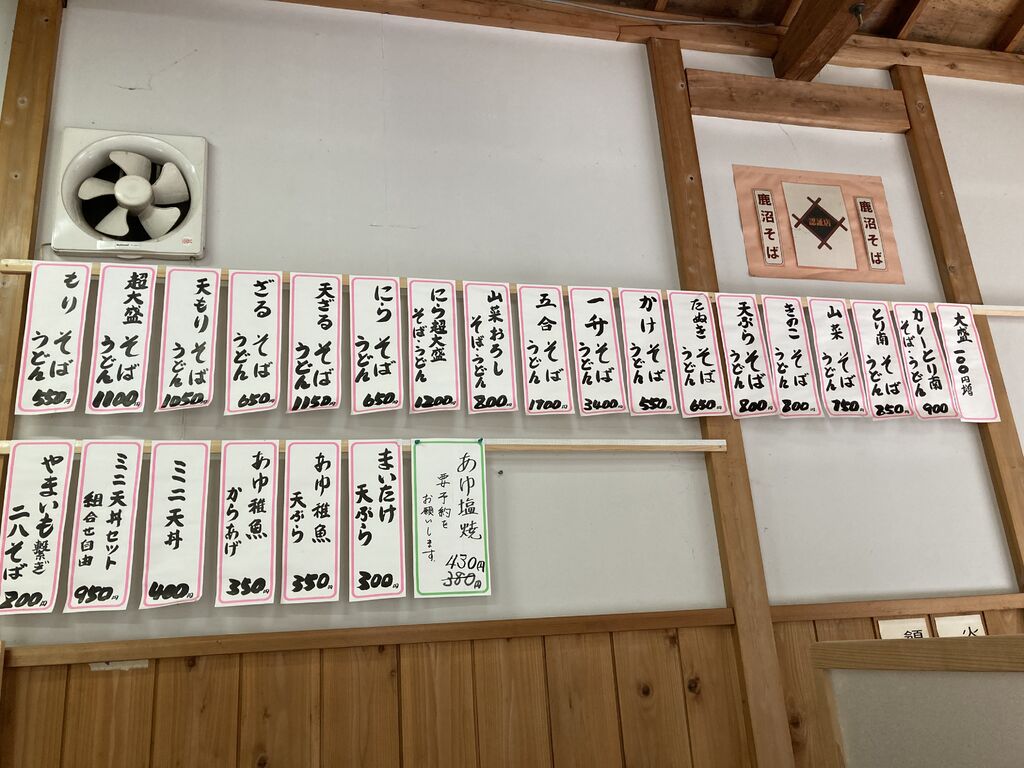 鹿沼そば
認証店
鹿沼そば
もり そば うどん 550円
超大盛 そば うどん 1100円
天もり そば うどん 1050円
ざる そば うどん 650円
天ざる そば うどん 1150円
にら そば うどん 650円
にら超大盛 そば・うどん 1200円
山菜おろし そば・うどん 800円
五合 そば うどん 1700円
一升 そば うどん 3400円
かけ そば うどん 550円
たぬき そば うどん 650円
天ぷら そば うどん 800円
きのこ そば うどん 800円
山菜 そば うどん 750円
とり南 そば うどん 850円
カレーとり南 そば・うどん 900
大盛 一〇〇円増
やまいも繋ぎ 二八そば 200円
ミニ天丼セット 組合せ自由 950円
ミニ天丼 400円
あゆ稚魚 からあげ 350円
あゆ稚魚 天ぷら 350円
まいたけ 天ぷら 300円
あゆ塩焼
要予約を
お願いします。
430円
380円
火